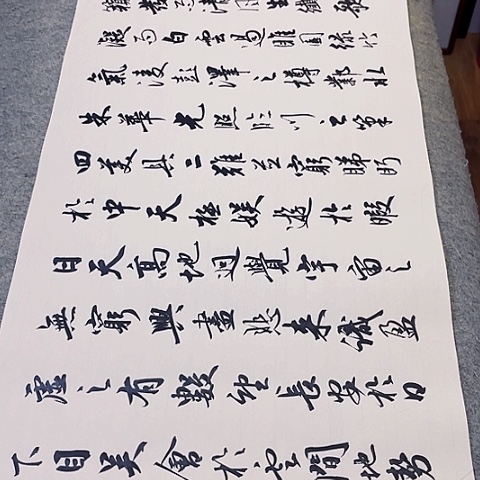 籟發而清風生纖歌
凝而白雲遏睢園綠竹
氣凌彭澤之樽鄴水
朱華光照臨川之筆
四美具二難並窮睇眄
於中天極娛遊於暇
日天高地迥覺宇宙之
無窮興盡悲來識盈
虛之有數望長安於日
下目吳會於雲間地勢